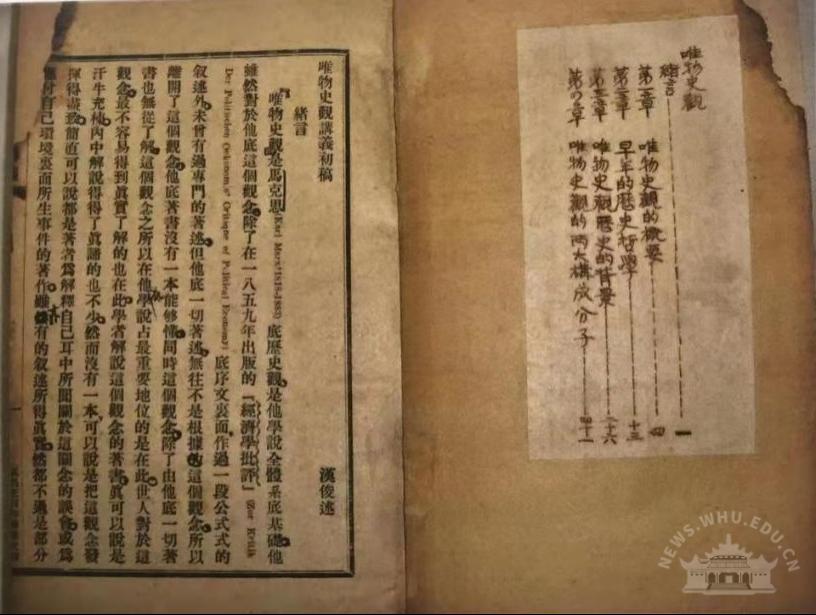 唯物史觀
緒言 一
第一章 唯物史觀的概要 四
第二章 早年的歷史哲學 十三
第三章 唯物史觀歷史的背景 二十六
第四章 唯物史觀的兩大構成分子 四十一
唯物史觀講義初稿 漢俊述
緒言
唯物史觀是馬克思(Karl Marx 1818-1883)底歷史觀是他學說全體系底基礎他
雖然對於他底這個觀念除了在一八五九年出版的「經濟學批評」(Zur Kritik
Der Politischen Oekonomie Critique of Political Economy)底序文裏面作過一段公式式的
叙述外未曾有過專門的著述但他底一切著述無往不是根據的這個觀念所以
離開了這個觀念他底著書沒有一本能够懂同時這個觀念除了由他底一切著
書也無從了解這個觀念之所以在他學說占最重要地位的是在此世人對於這
觀念最不容易得到眞實了解的也在此學者解說這個觀念的著書眞可以說是
汗牛充棟內中解說得得了眞諦的也不少然而沒有一本可以說是把這觀念發
揮得盡致簡直可以說都是著者爲解釋自己耳中所聞關於這關念的誤會或爲
付自己環境裏面所生事件的著作雖然有的叙述所得眞實然都不過是部分
NEWS.WHU.EDU.CN